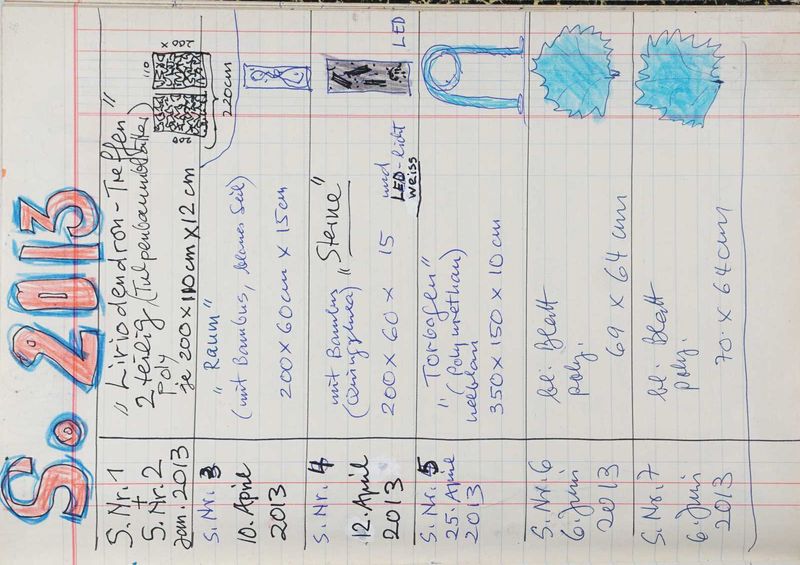 S. 2013
S. Nr. 1
+
S. Nr. 2
Jan. 2013
"Liriodendron-Treffen"
2 teilig (Tulpenbaumblätter)
Poly
je 200 x 110 cm x 12 cm
110
x
200
220cm
S. Nr. 3
10. April
2013
"Raum"
(mit Bambus, blaues Seil)
200 x 60 cm x 15 cm
S. Nr. 4
12. April
2013
mit Bambus "Steine"
200 x 60 x 15 und
LED-licht
weiss
LED
S. Nr. 5
25. April
2013
"Torbogen"
(Polyurethan)
hellblau
350 x 150 x 10 cm
S. Nr. 6
6. Juni
2013
bl. Blatt
poly.
69 x 64 cm
S. Nr. 7
6. Juni
2013
bl. Blatt
poly.
70 x 64 cm